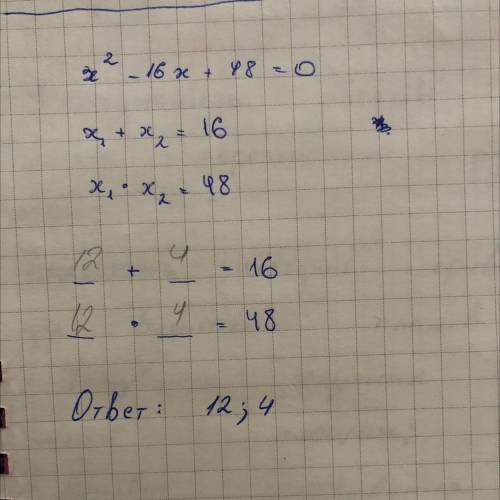 x² - 16x + 48 = 0
x₁ + x₂ = 16
x₁ · x₂ = 48
12 + 4 = 16
12 · 4 = 48
Ответ: 12; 4